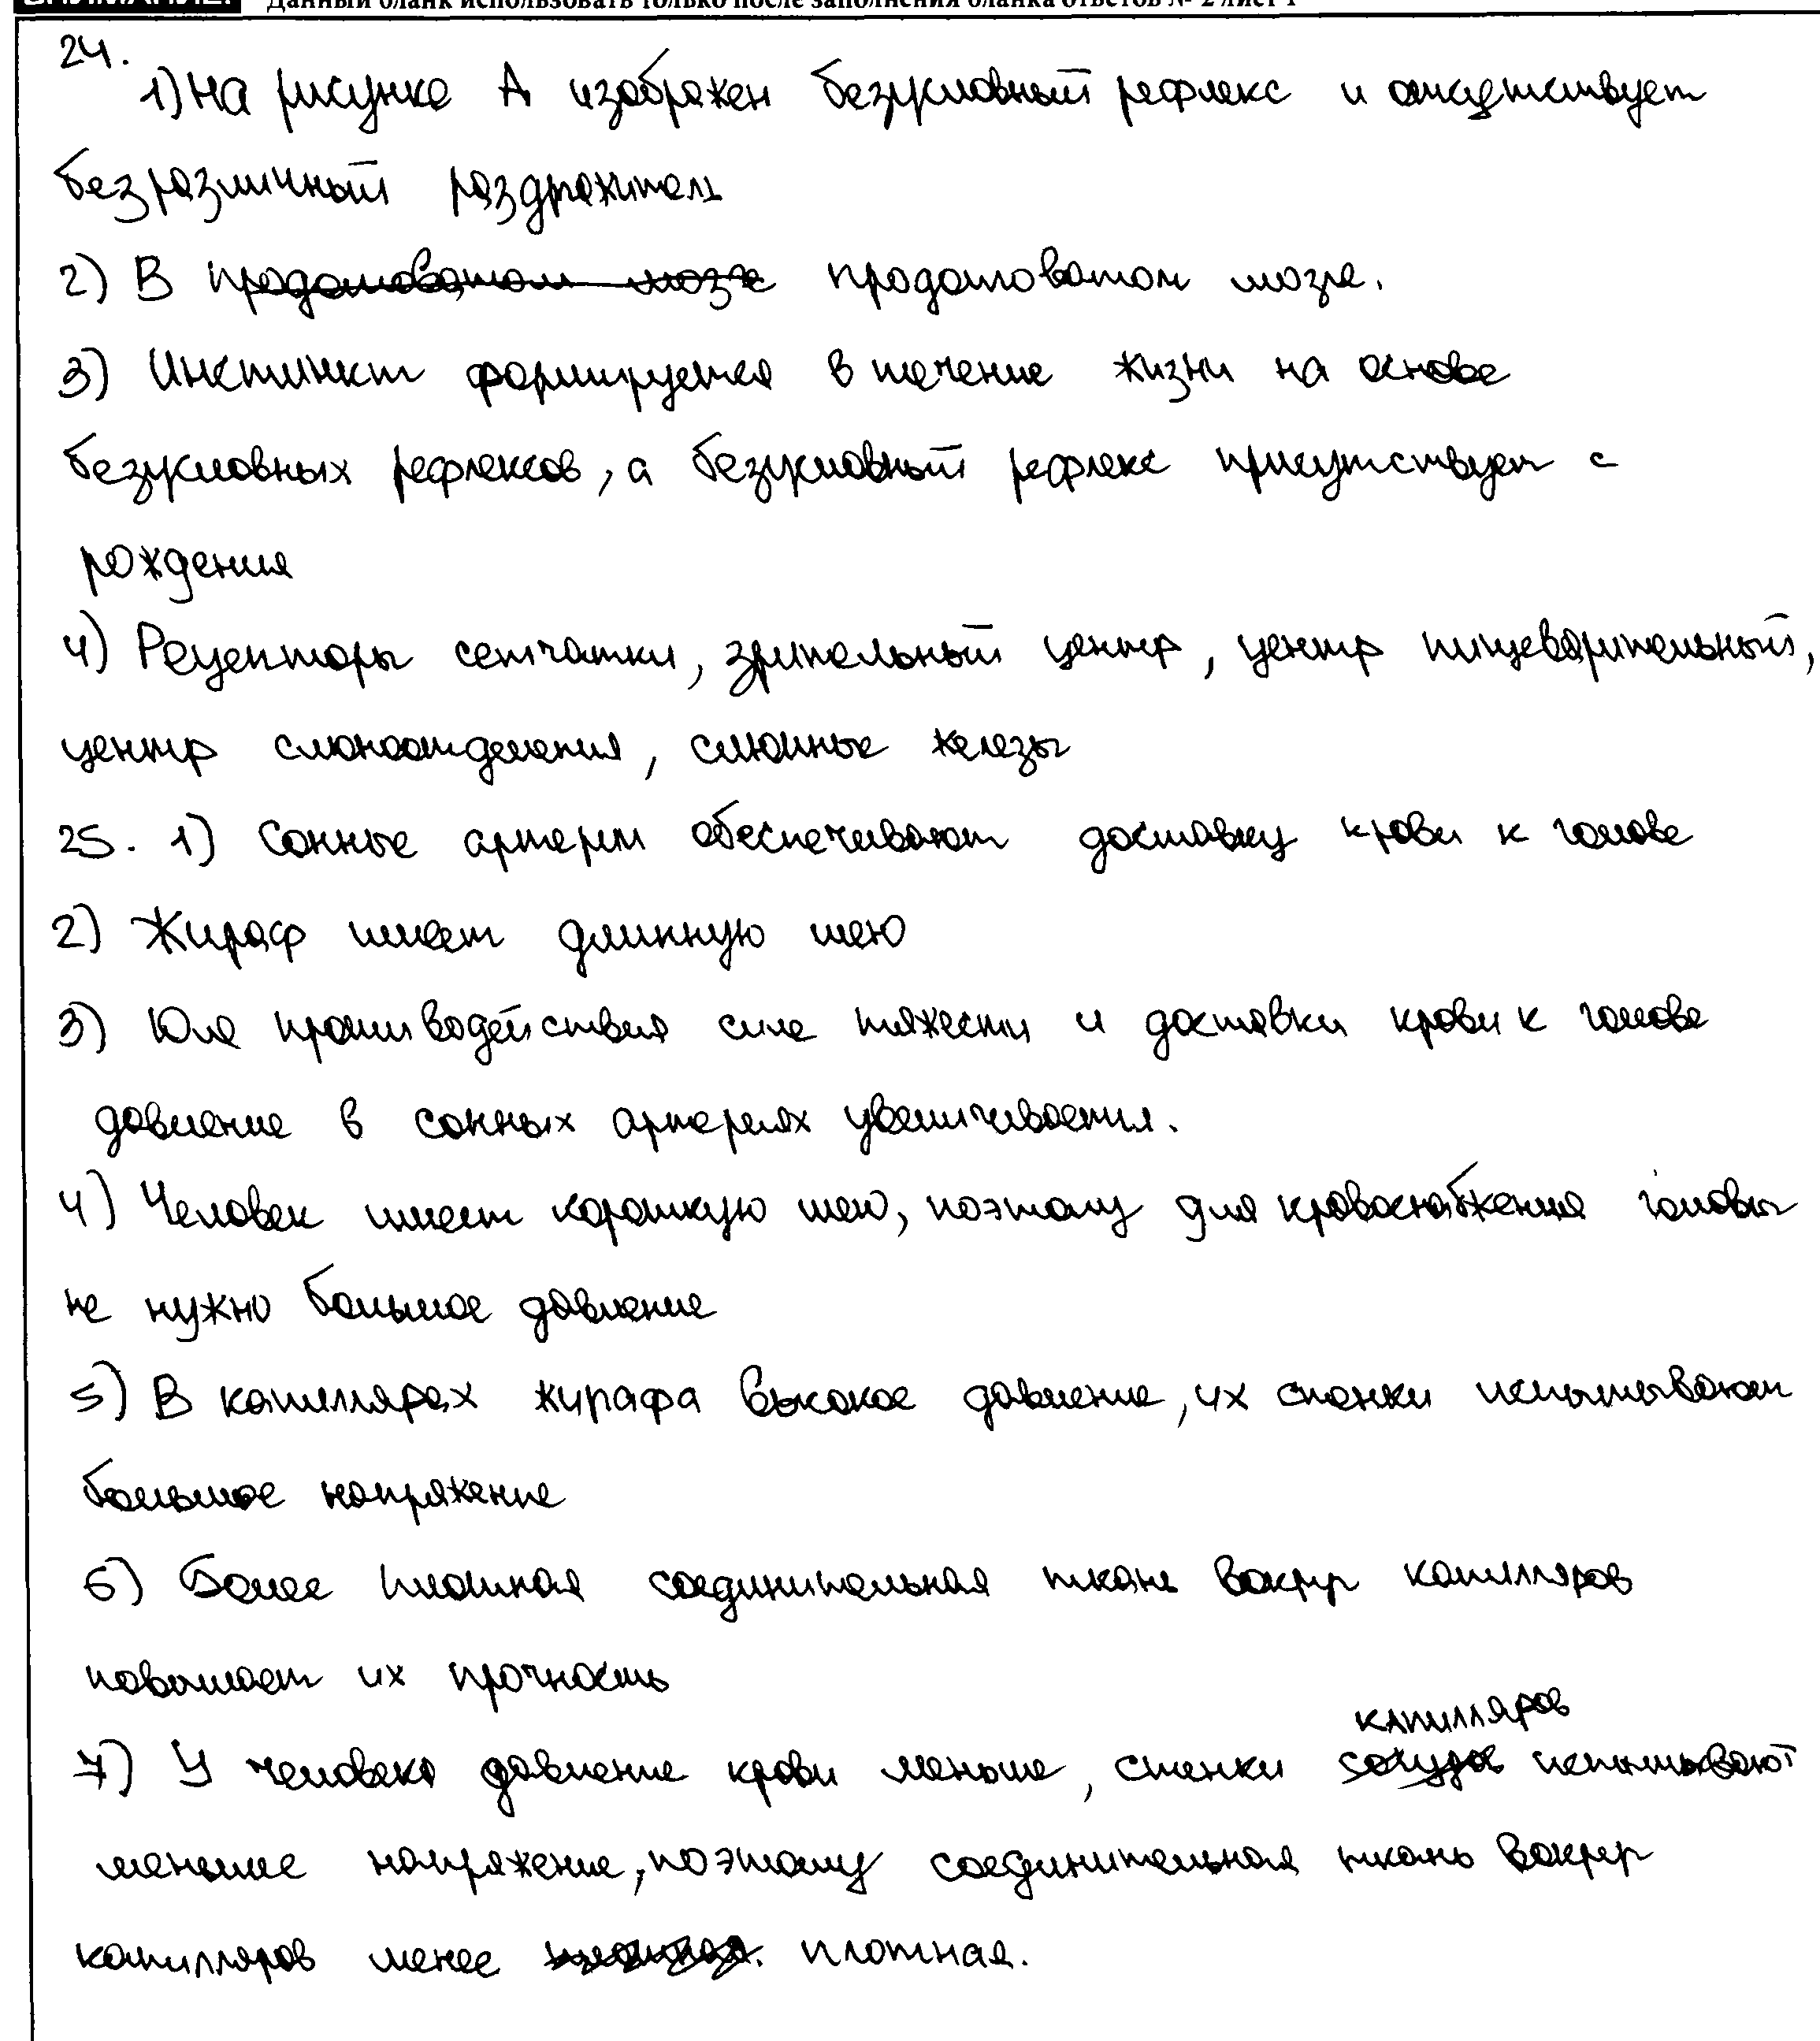 Данный бланк использовать только после заполнения бланка ответов № 2 лист 1
24.
1) На рисунке А изображен безусловный рефлекс и отсутствует
безразличный раздражитель
2) В продолговатом мозге продолговатом мозге.
3) Инстинкт формируется в течение жизни на основе
безусловных рефлексов, а безусловный рефлекс присутствует с
рождения
4) Рецепторы сетчатки, зрительный центр, центр пищеварительный,
центр слюноотделения, слюнные железы
25. 1) Сонные артерии обеспечивают доставку крови к голове
2) Жираф имеет длинную шею
3) Для противодействия силе тяжести и доставки крови к голове
давление в сонных артериях увеличивается.
4) Человек имеет короткую шею, поэтому для кровоснабжения головы
не нужно большое давление
5) В капиллярах жирафа высокое давление, их стенки испытывают
большое напряжение
6) Более плотная соединительная ткань вокруг капилляров
повышает их прочность
капилляров
7) У человека давление крови меньше, стенки сосудов испытывают
меньшее напряжение, поэтому соединительная ткань вокруг
капилляров менее плотная.